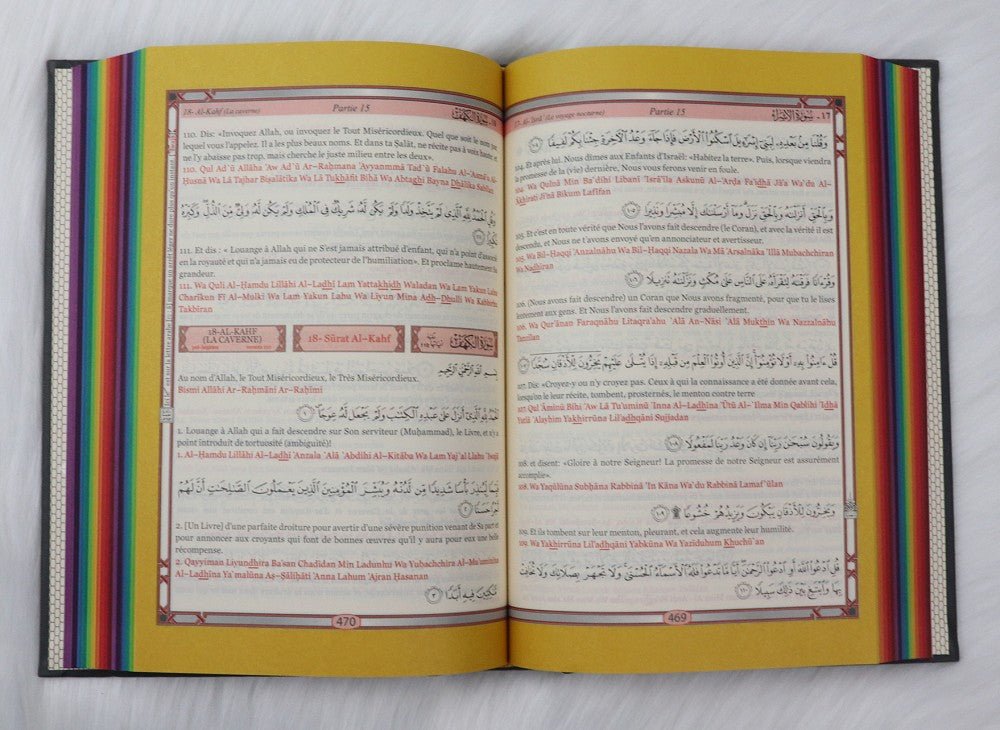 17- Al- Isrā' (Le voyage nocturne) Partie 15 ١٧ - سورة الإسراء
وَقُلْنَا مِنْ بَعْدِهِ لِبَنِي إِسْرَائِيلَ اسْكُنُوا الْأَرْضَ فَإِذَا جَاءَ وَعْدُ الْآخِرَةِ جِئْنَا بِكُمْ لَفِيفًا ١٠٤
104. Et après lui. Nous dîmes aux Enfants d'Israël: «Habitez la terre». Puis, lorsque viendra
la promesse de la (vie) dernière, Nous vous ferons venir en foule.
104. Wa Qulnā Min Ba`dihi Libanī 'Isrā'īla Askunū Al-'Arđa Fa'idhā Jā'a Wa`du Al-
'Ākhirati Ji'nā Bikum Lafīfan
وَبِالْحَقِّ أَنْزَلْنَاهُ وَبِالْحَقِّ نَزَلَ وَمَا أَرْسَلْنَاكَ إِلَّا مُبَشِّرًا وَنَذِيرًا ١٠٥
105. Et c'est en toute vérité que Nous l'avons fait descendre (le Coran), et avec la vérité il est
descendu, et Nous ne t'avons envoyé qu'en annonciateur et avertisseur.
105. Wa Bil-Haqqi 'Anzalnāhu Wa Bil-Haqqi Nazala Wa Mā 'Arsalnāka 'Illā Mubachchiran
Wa Nadhīran
وَقُرْآنًا فَرَقْنَاهُ لِتَقْرَأَهُ عَلَى النَّاسِ عَلَى مُكْثٍ وَنَزَّلْنَاهُ تَنْزِيلًا ١٠٦
106. (Nous avons fait descendre) un Coran que Nous avons fragmenté, pour que tu le lises
lentement aux gens. Et Nous l'avons fait descendre graduellement.
106. Wa Qur'ānan Faraqnāhu Litaqra'ahu `Alá An-Nāsi `Alá Mukthin Wa Nazzalnāhu
Tanzīlan
قُلْ آمِنُوا بِهِ أَوْ لَا تُؤْمِنُوا إِنَّ الَّذِينَ أُوتُوا الْعِلْمَ مِنْ قَبْلِهِ إِذَا يُتْلَى عَلَيْهِمْ يَخِرُّونَ لِلْأَذْقَانِ سُجَّدًا ١٠٧
107. Dis: «Croyez-y ou n'y croyez pas. Ceux à qui la connaissance a été donnée avant cela,
lorsqu'on leur récite, tombent, prosternés, le menton contre terre
107. Qul 'Āminū Bihi 'Aw Lā Tu'uminū 'Inna Al-Ladhīna 'Ūtū Al-`Ilma Min Qablihi 'Idhā
Yutlá `Alayhim Yakhirrūna Lil'adhqāni Sujjadan
وَيَقُولُونَ سُبْحَانَ رَبِّنَا إِنْ كَانَ وَعْدُ رَبِّنَا لَمَفْعُولًا ١٠٨
108. et disent: «Gloire à notre Seigneur! La promesse de notre Seigneur est assurément
accomplie».
108. Wa Yaqūlūna Subhāna Rabbinā 'In Kāna Wa`du Rabbinā Lamaf`ūlan
وَيَخِرُّونَ لِلْأَذْقَانِ يَبْكُونَ وَيَزِيدُهُمْ خُشُوعًا ۩ ١٠٩
109. Et ils tombent sur leur menton, pleurant, et cela augmente leur humilité.
109. Wa Yakhirrūna Lil'adhqāni Yabkūna Wa Yazīduhum Khuchū`an
قُلِ ادْعُوا اللَّهَ أَوِ ادْعُوا الرَّحْمَنَ أَيًّا مَا تَدْعُوا فَلَهُ الْأَسْمَاءُ الْحُسْنَى وَلَا تَجْهَرْ بِصَلَاتِكَ وَلَا تُخَافِتْ
بِهَا وَابْتَغِ بَيْنَ ذَلِكَ سَبِيلًا ١١٠
469
18- Al-Kahf (La caverne) Partie 15 ١٨ - سورة الكهف
110. Dis: «Invoquez Allah, ou invoquez le Tout Miséricordieux. Quel que soit le nom par
lequel vous l'appelez. Il a les plus beaux noms. Et dans ta Şalāt, ne récite pas à voix haute; et
ne l'y abaisse pas trop, mais cherche le juste milieu entre les deux».
110. Qul Ad`ū Allāha 'Aw Ad`ū Ar-Raĥmana 'Ayyanmmā Tad`ū Falahu Al-'Asmā'u Al-
Ĥusná Wa Lā Tajhar Bişalātika Wa Lā Tukhāfit Bihā Wa Abtaghi Bayna Dhālika Sabīlan
وَقُلِ الْحَمْدُ لِلَّهِ الَّذِي لَمْ يَتَّخِذْ وَلَدًا وَلَمْ يَكُنْ لَهُ شَرِيكٌ فِي الْمُلْكِ وَلَمْ يَكُنْ لَهُ وَلِيٌّ مِنَ الذُّلِّ وَكَبِّرْهُ
تَكْبِيرًا ١١١
111. Et dis : « Louange à Allah qui ne S'est jamais attribué d'enfant, qui n'a point d'associé
en la royauté et qui n'a jamais eu de protecteur de l'humiliation». Et proclame hautement Sa
grandeur.
111. Wa Quli Al-Ĥamdu Lillāhi Al-Ladhī Lam Yattakhidh Waladan Wa Lam Yakun Lahu
Charīkun Fī Al-Mulki Wa Lam Yakun Lahu Wa Līyun Mina Adh-Dhulli Wa Kabbirhu
Takbīran
18-AL-KAHF
(LA CAVERNE)
18- Sūrat Al-Kahf
سورة الكهف
Au nom d'Allah, le Tout Miséricordieux, le Très Miséricordieux. بسم الله الرحمن الرحيم
Bismi Allāhi Ar-Raĥmāni Ar-Raĥīmi
الْحَمْدُ لِلَّهِ الَّذِي أَنْزَلَ عَلَى عَبْدِهِ الْكِتَابَ وَلَمْ يَجْعَلْ لَهُ عِوَجًا ١
1. Louange à Allah qui a fait descendre sur Son serviteur (Muĥammad), le Livre, et n'y a
point introduit de tortuosité (ambiguïté)!
1. Al-Ĥamdu Lillāhi Al-Ladhī 'Anzala `Alá `Abdihi Al-Kitāba Wa Lam Yaj`al Lahu `Iwajā
قَيِّمًا لِيُنْذِرَ بَأْسًا شَدِيدًا مِنْ لَدُنْهُ وَيُبَشِّرَ الْمُؤْمِنِينَ الَّذِينَ يَعْمَلُونَ الصَّالِحَاتِ أَنَّ لَهُمْ
أَجْرًا حَسَنًا ٢
2. [Un Livre] d'une parfaite droiture pour avertir d'une sévère punition venant de Sa part et
pour annoncer aux croyants qui font de bonnes œuvres qu'il y aura pour eux une belle
récompense.
2. Qayyiman Liyundhira Ba'san Chadīdan Min Ladunhu Wa Yubachchira Al-Mu'uminīna
Al-Ladhīna Ya`malūna Aş-Şāliĥāti 'Anna Lahum 'Ajran Ĥasanan
مَاكِثِينَ فِيهِ أَبَدًا ٣
470